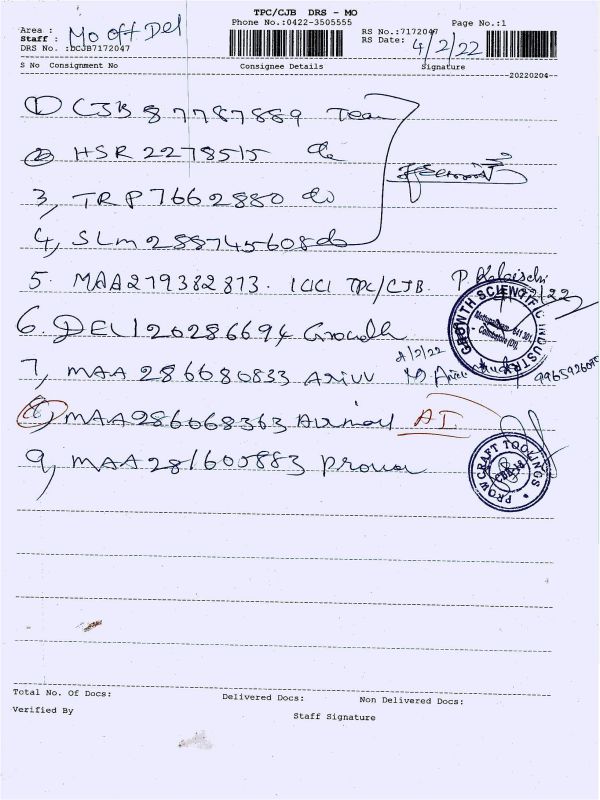 TPC/CJB DRS - MO
Area : Mo off Del
Phone No.:0422-3505555
Page No.:1
Staff :
RS No.:7172047
DRS No. :DCJB7172047
RS Date: 4/2/22
S No Consignment No Consignee Details Signature
20220204
1) CJB 87787889 Team
2) HSR 2278515 do
3, TRP 7662880 do
4, SLM 288745608 do
5. MAA279382873. ICICI TPC/CJB.
6. DEL120286694 Growth
GROWTH SCIENTIFIC INDUSTRY
Coimbatore (Dt).
4/2/22
7, MAA 286680833 Arivu
8) MAA286068363 AI
9, MAA 281605883
PROWCRAFT TOOLINGS
CBE-18
Total No. Of Docs: Delivered Docs: Non Delivered Docs:
Verified By Staff Signature